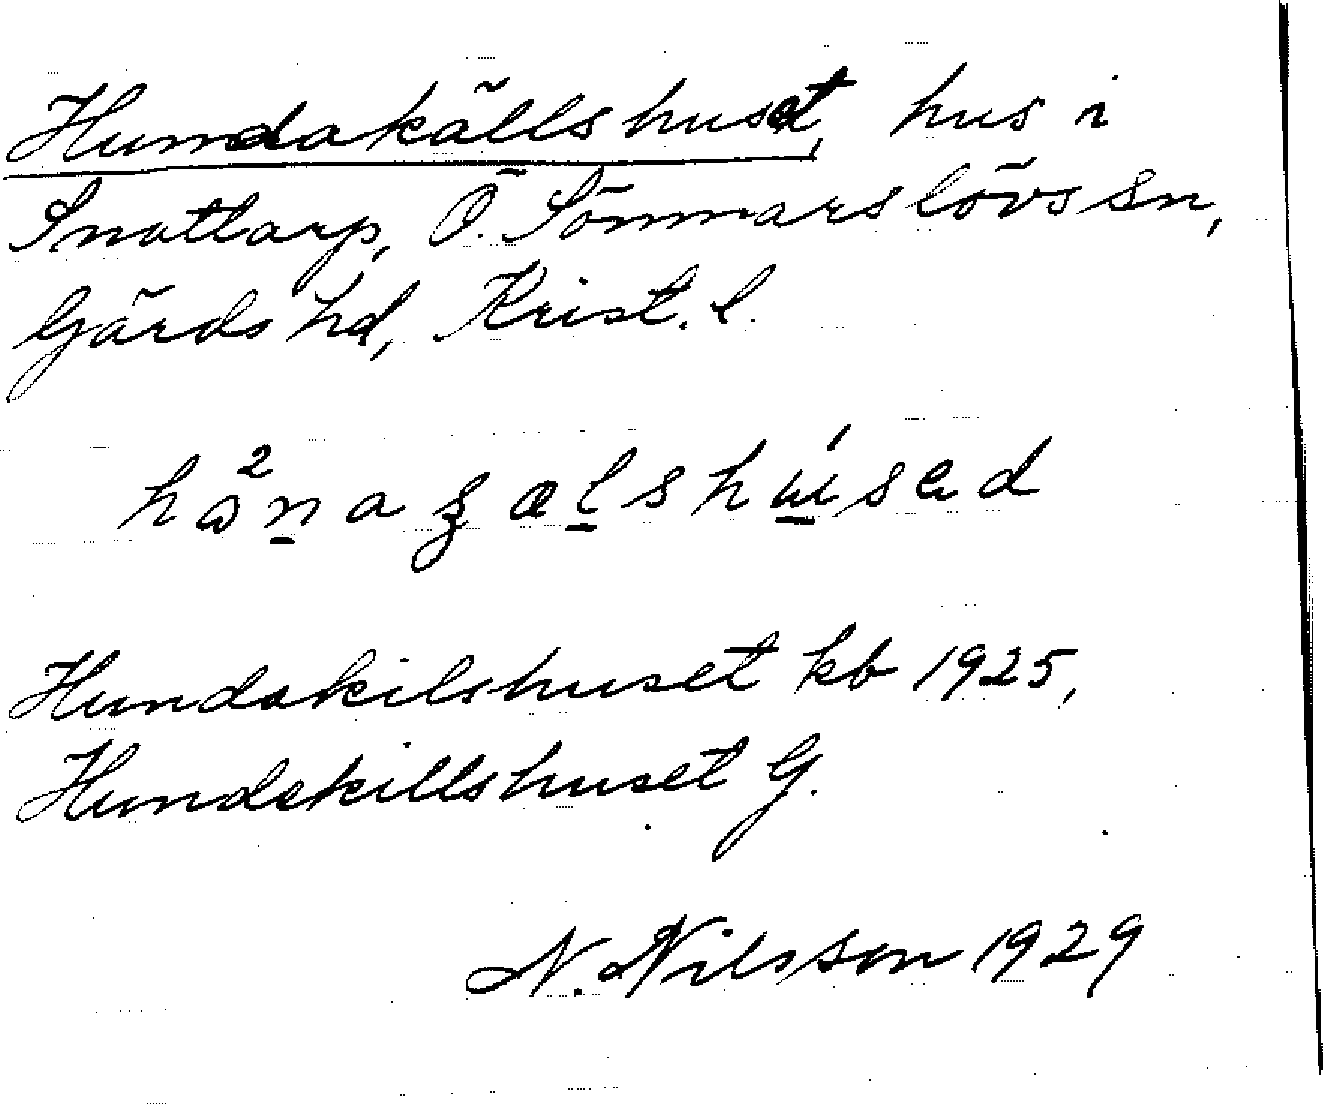 Hundakällshuset, hus i
Snattarp, Ö. Sönnarslövs sn,
Gärds hd, Krist. l.
Hundakilshuset kb 1925,
Hundskillshuset G.
N. Nilsson 1929